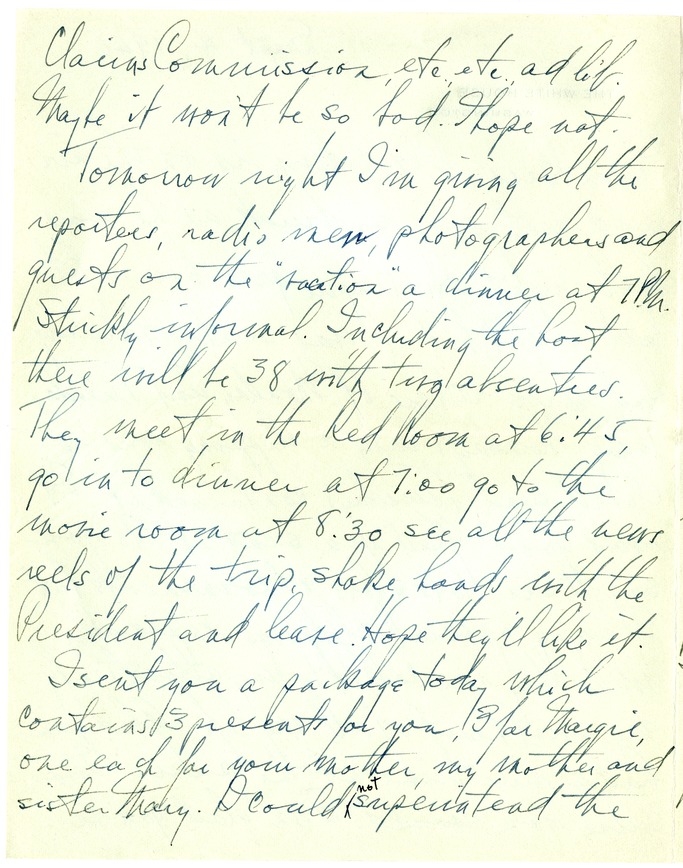 Claims Commission, etc. etc., ad lib.
Maybe it won't be so bad. I hope not.
Tomorrow night I'm giving all the
reporters, radio men, photographers and
guests on the "vacation" a dinner at 7 P.M.
Strickly informal. Including the host
there will be 38 with two absentees.
They meet in the Red Room at 6:45,
go in to dinner at 7:00 go to the
movie room at 8:30 see all the news
reels of the trip, shake hands with the
President and leave. Hope they'll like it.
I sent you a package today which
contains 3 presents for you, 3 for Margie,
one each for your mother, my mother and
sister Mary. I could not superintend the